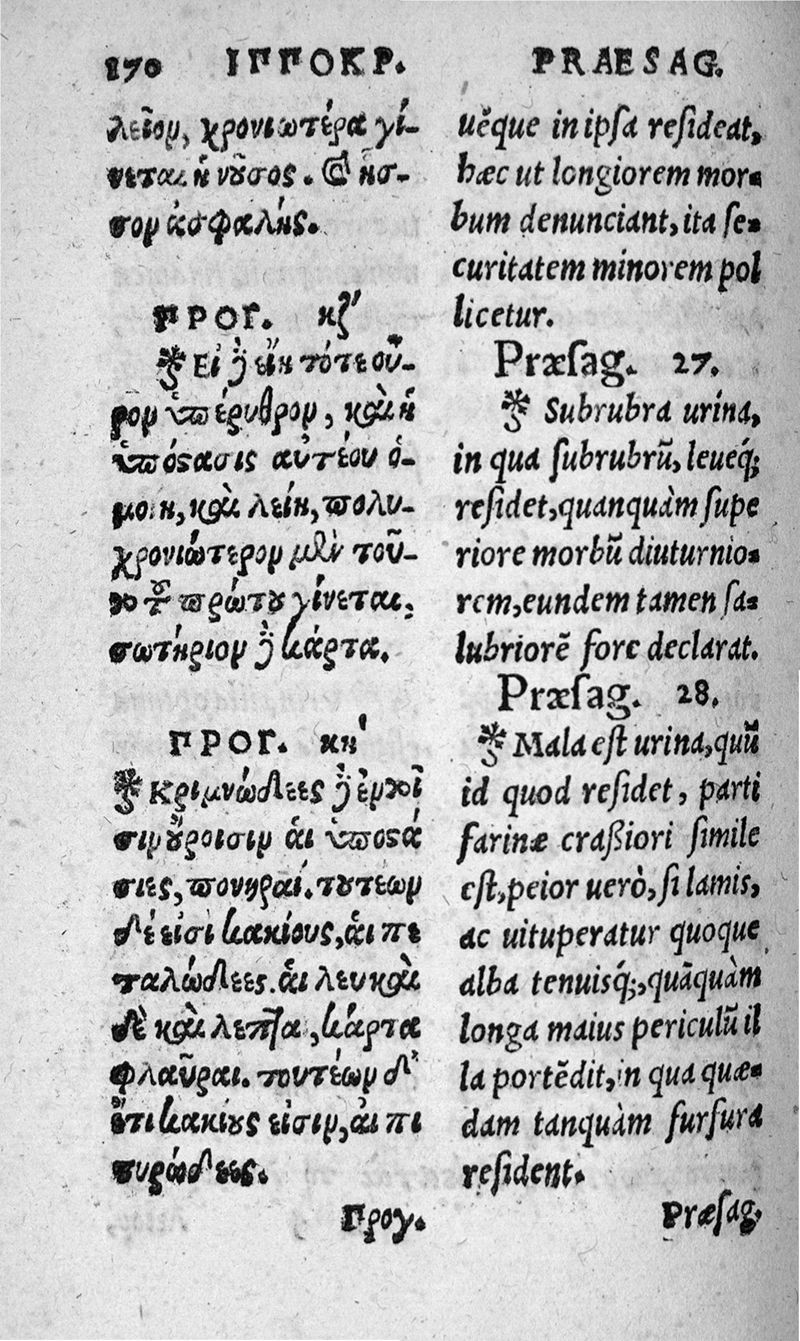 270 ΙΠΠΟΚΡ. PRAESAG.
λεῖον, χρονιωτέρα γί-
νεται ἡ νοῦσος. καὶ ἧσ-
σον ἀσφαλής.
ΠΡΟΓ. κζ′
Εἰ δ' εἴη τότε οὖ-
ρον ὑπέρυθρον, καὶ ἡ
ὑπόστασις αὐτέου ὁ-
μοίη, καὶ λείη, πολυ-
χρονιώτερον μὲν τοῦ-
το τοῦ πρώτου γίνεται,
σωτήριον δ' κάρτα.
ΠΡΟΓ. κη′
Κριμνώδεες δ' ἐν τοῖ
σιν οὔροισιν αἱ ὑποστά
σιες, πονηραί. τουτέων
δέ εἰσι κακίους, αἱ πε
ταλώδεες. αἱ λευκαὶ
δὲ καὶ λεπταὶ, κάρτα
φλαῦραι. τουτέων δ'
ἔτι κακίους εἰσιν, αἱ πι
τυρώδεες.
Προγ.
uĕque in ipsa resideat,
hæc ut longiorem mor-
bum denunciant, ita se-
curitatem minorem pol
licetur.
Præsag. 27.
Subrubra urina,
in qua subrubrũ, leueq́;
residet, quanquàm supe
riore morbũ diuturnio-
rem, eundem tamen sa-
lubriorẽ fore declarat.
Præsag. 28.
Mala est urina, quũ
id quod residet, parti
farinæ craßiori simile
est, peior uerò, si lamis,
ac uituperatur quoque
alba tenuisq́;, quãquàm
longa maius periculũ il
la portẽdit, in qua quæ-
dam tanquàm furfura
resident.
Præsag.